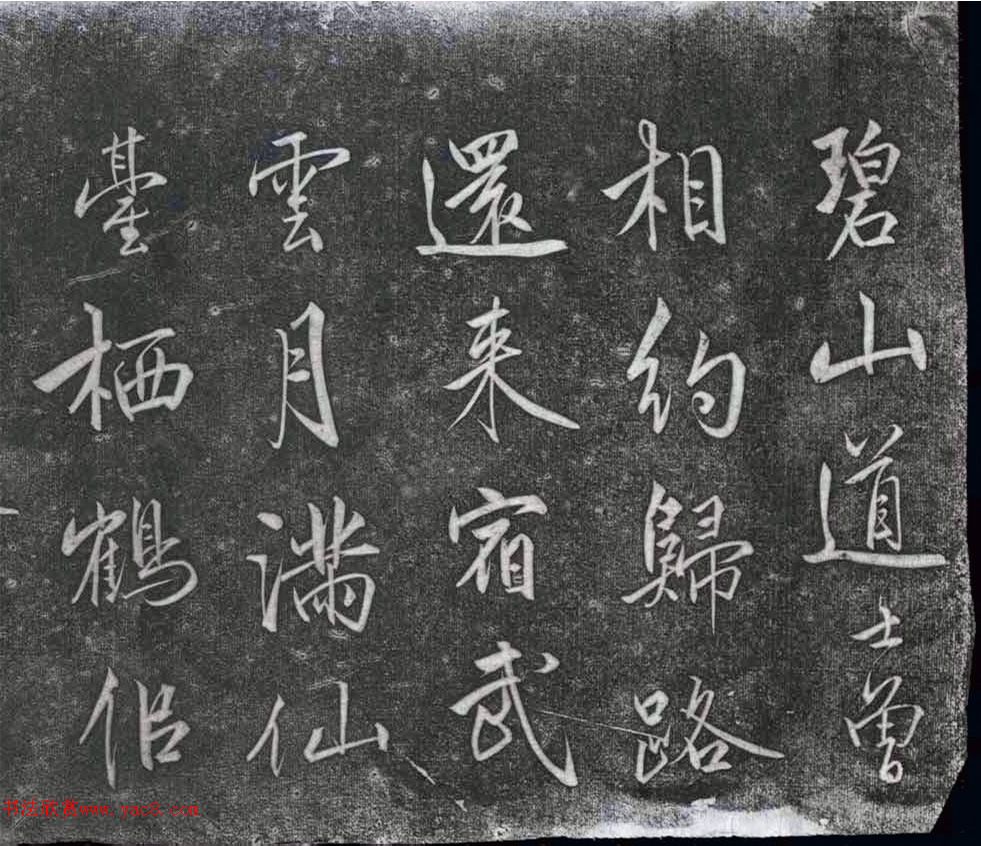 碧山道士曾
相約歸路
還来宿武
雲月滿仙
臺栖鶴侣
书法欣赏www.yac8.com